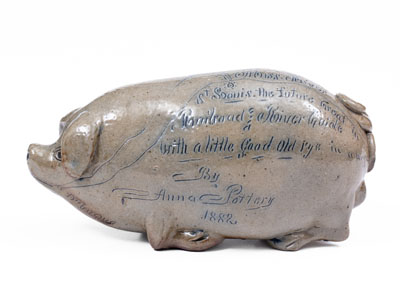 St Louis. the Future Great
Railroad & River Guide
With a little Good Old Rye in
By
Anna Pottery
1882